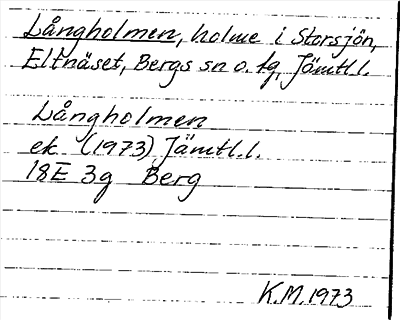 Långholmen, holme i Storsjön,
Eltnäset, Bergs sn o. tg, Jämtl.l.
Långholmen
ek (1973) Jämtl.l.
18E 3g Berg
K.M.1973